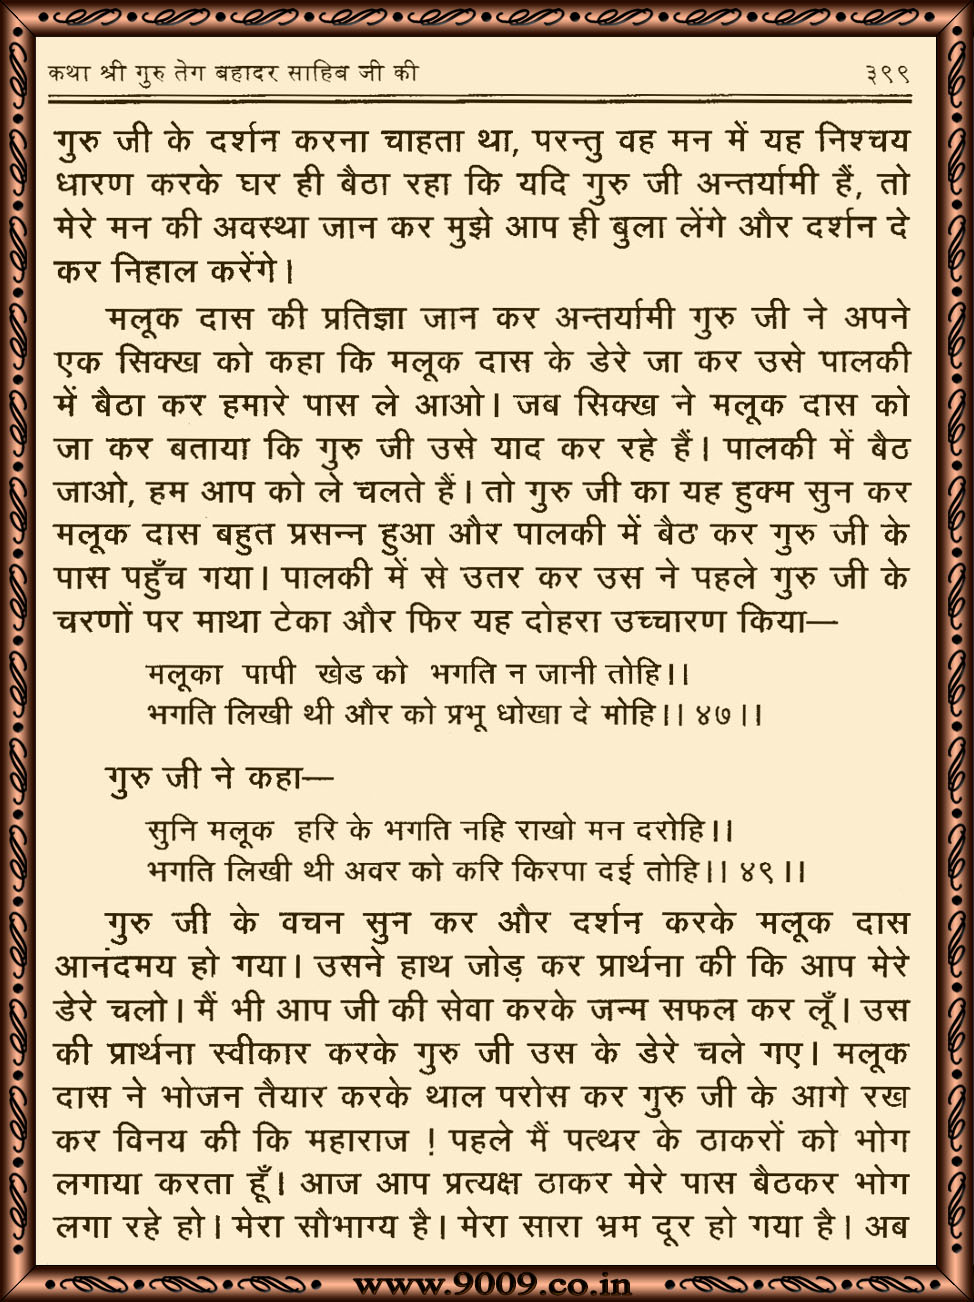 कथा श्री गुरु तेग बहादर साहिब जी की ३९९
गुरु जी के दर्शन करना चाहता था, परन्तु वह मन में यह निश्चय
धारण करके घर ही बैठा रहा कि यदि गुरु जी अन्तर्यामी हैं, तो
मेरे मन की अवस्था जान कर मुझे आप ही बुला लेंगे और दर्शन दे
कर निहाल करेंगे।
मलूक दास की प्रतिज्ञा जान कर अन्तर्यामी गुरु जी ने अपने
एक सिक्ख को कहा कि मलूक दास के डेरे जा कर उसे पालकी
में बैठा कर हमारे पास ले आओ। जब सिक्ख ने मलूक दास को
जा कर बताया कि गुरु जी उसे याद कर रहे हैं। पालकी में बैठ
जाओ, हम आप को ले चलते हैं। तो गुरु जी का यह हुक्म सुन कर
मलूक दास बहुत प्रसन्न हुआ और पालकी में बैठ कर गुरु जी के
पास पहुँच गया। पालकी में से उतर कर उस ने पहले गुरु जी के
चरणों पर माथा टेका और फिर यह दोहरा उच्चारण किया—
मलूका पापी खेड को भगति न जानी तोहि।।
भगति लिखी थी और को प्रभू धोखा दे मोहि।। ४७।।
गुरु जी ने कहा—
सुनि मलूक हरि के भगति नहि राखो मन दरोहि।।
भगति लिखी थी अवर को करि किरपा दई तोहि।। ४९।।
गुरु जी के वचन सुन कर और दर्शन करके मलूक दास
आनंदमय हो गया। उसने हाथ जोड़ कर प्रार्थना की कि आप मेरे
डेरे चलो। मैं भी आप जी की सेवा करके जन्म सफल कर लूँ। उस
की प्रार्थना स्वीकार करके गुरु जी उस के डेरे चले गए। मलूक
दास ने भोजन तैयार करके थाल परोस कर गुरु जी के आगे रख
कर विनय की कि महाराज ! पहले मैं पत्थर के ठाकरों को भोग
लगाया करता हूँ। आज आप प्रत्यक्ष ठाकर मेरे पास बैठकर भोग
लगा रहे हो। मेरा सौभाग्य है। मेरा सारा भ्रम दूर हो गया है। अब
www.9009.co.in